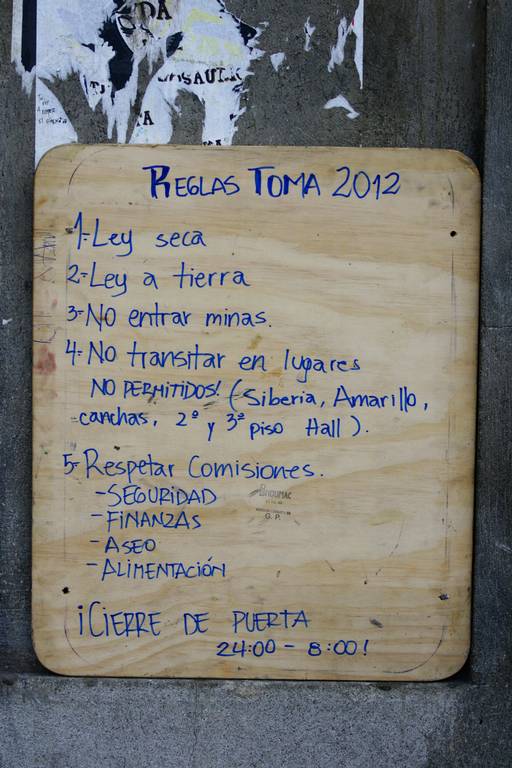 DA
SAUL
A
REGLAS TOMA 2012
1-Ley seca
2-Ley a tierra
3-NO entrar minas.
4-NO transitar en lugares
NO PERMITIDOS! (Siberia, Amarillo,
canchas, 2º y 3º piso Hall).
5-Respetar Comisiones.
-SEGURIDAD
-FINANZAS
-ASEO
-ALIMENTACIÓN
G. P.
¡CIERRE DE PUERTA
24:00 - 8:00!